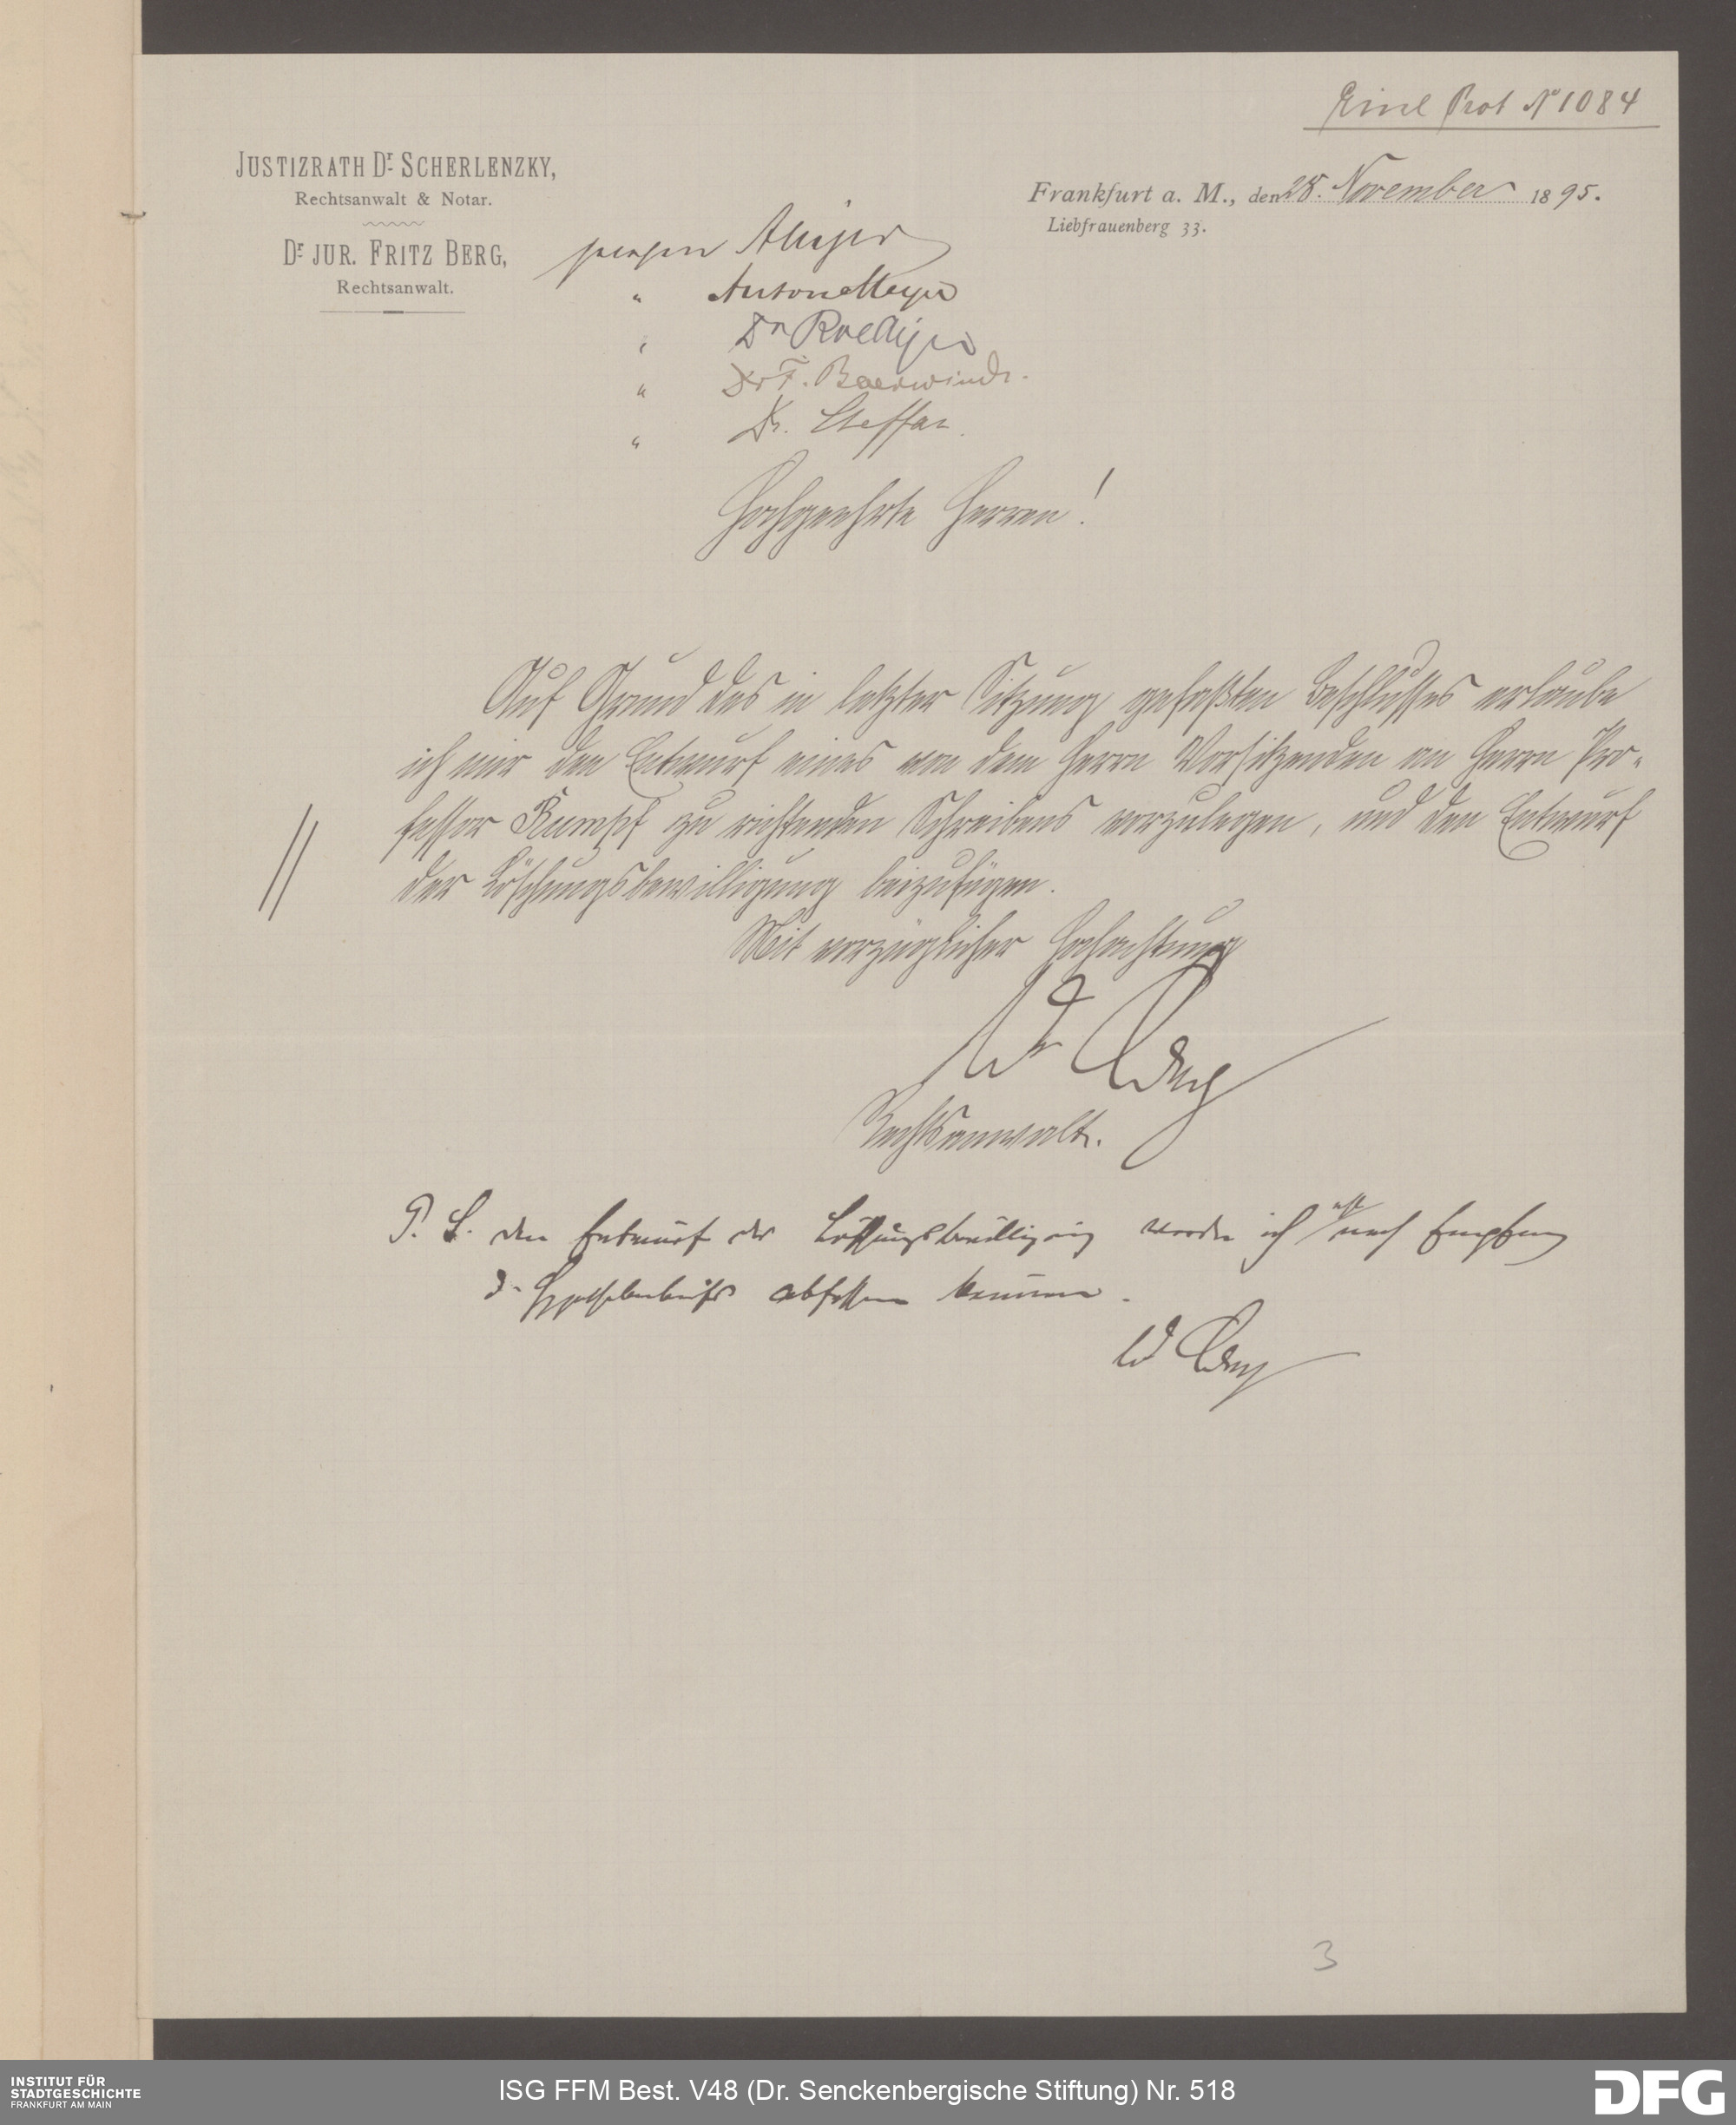 Einl Prot No 1084
JUSTIZRATH Dr. SCHERLENZKY,
Rechtsanwalt & Notar.
Dr. JUR. FRITZ BERG,
Rechtsanwalt.
Frankfurt a. M., den 28. November 1895.
Liebfrauenberg 33.
gesehen
" Anton Meyer
" Dr Roediger
" Dr F. Baerwindt.
" Dr. Steffan.
Hochgeehrte Herren!
Auf Grund des in letzter Sitzung gefaßten Beschlusses erlaube
ich mir den Entwurf eines von dem Herrn Vorsitzenden an Herrn Pro-
fessor Rumpf zu richtenden Schreibens vorzulegen, und den Entwurf
der Löschungsbewilligung beizufügen.
Mit vorzüglicher Hochachtung
Dr Berg
Rechtsanwalt.
P. S. den Entwurf der Löschungsbewilligung werde ich erst nach Empfang
d. abfassen können.
Dr Berg
3
INSTITUT FÜR
STADTGESCHICHTE
FRANKFURT AM MAIN
ISG FFM Best. V48 (Dr. Senckenbergische Stiftung) Nr. 518
DFG